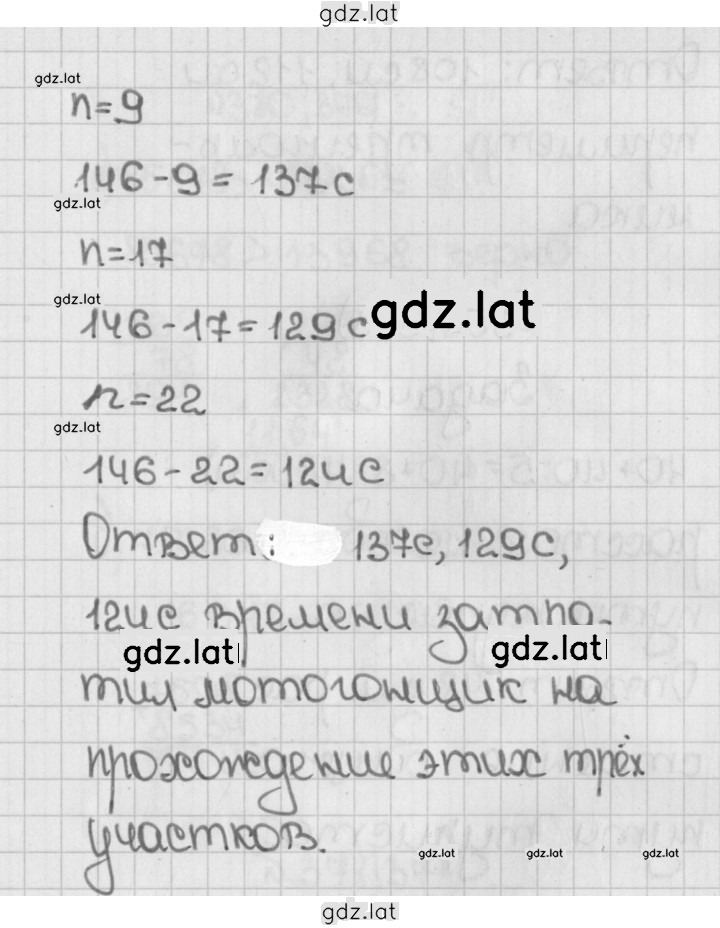 gdz.lat
gdz.lat
n=9
146-9=137с
gdz.lat
n=17
gdz.lat
146-17=129с gdz.lat
n=22
gdz.lat
146-22=124с
Ответ: 137с, 129с,
124с времени затра-
gdz.lat gdz.lat
тил мотогонщик на
прохождение этих трёх
участков.
gdz.lat gdz.lat gdz.lat
gdz.lat